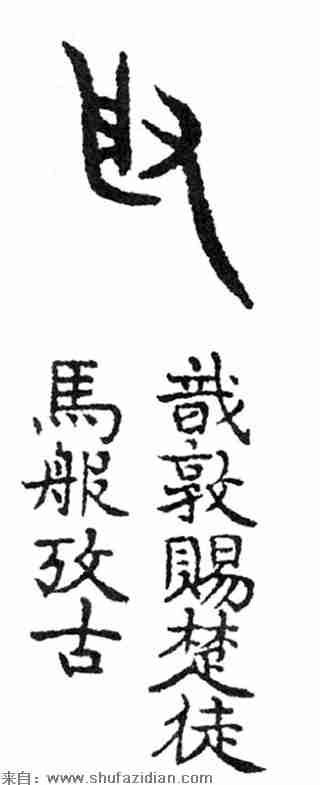 取
戠敦賜楚徒
馬般攷古
来自：www.shufazidian.com